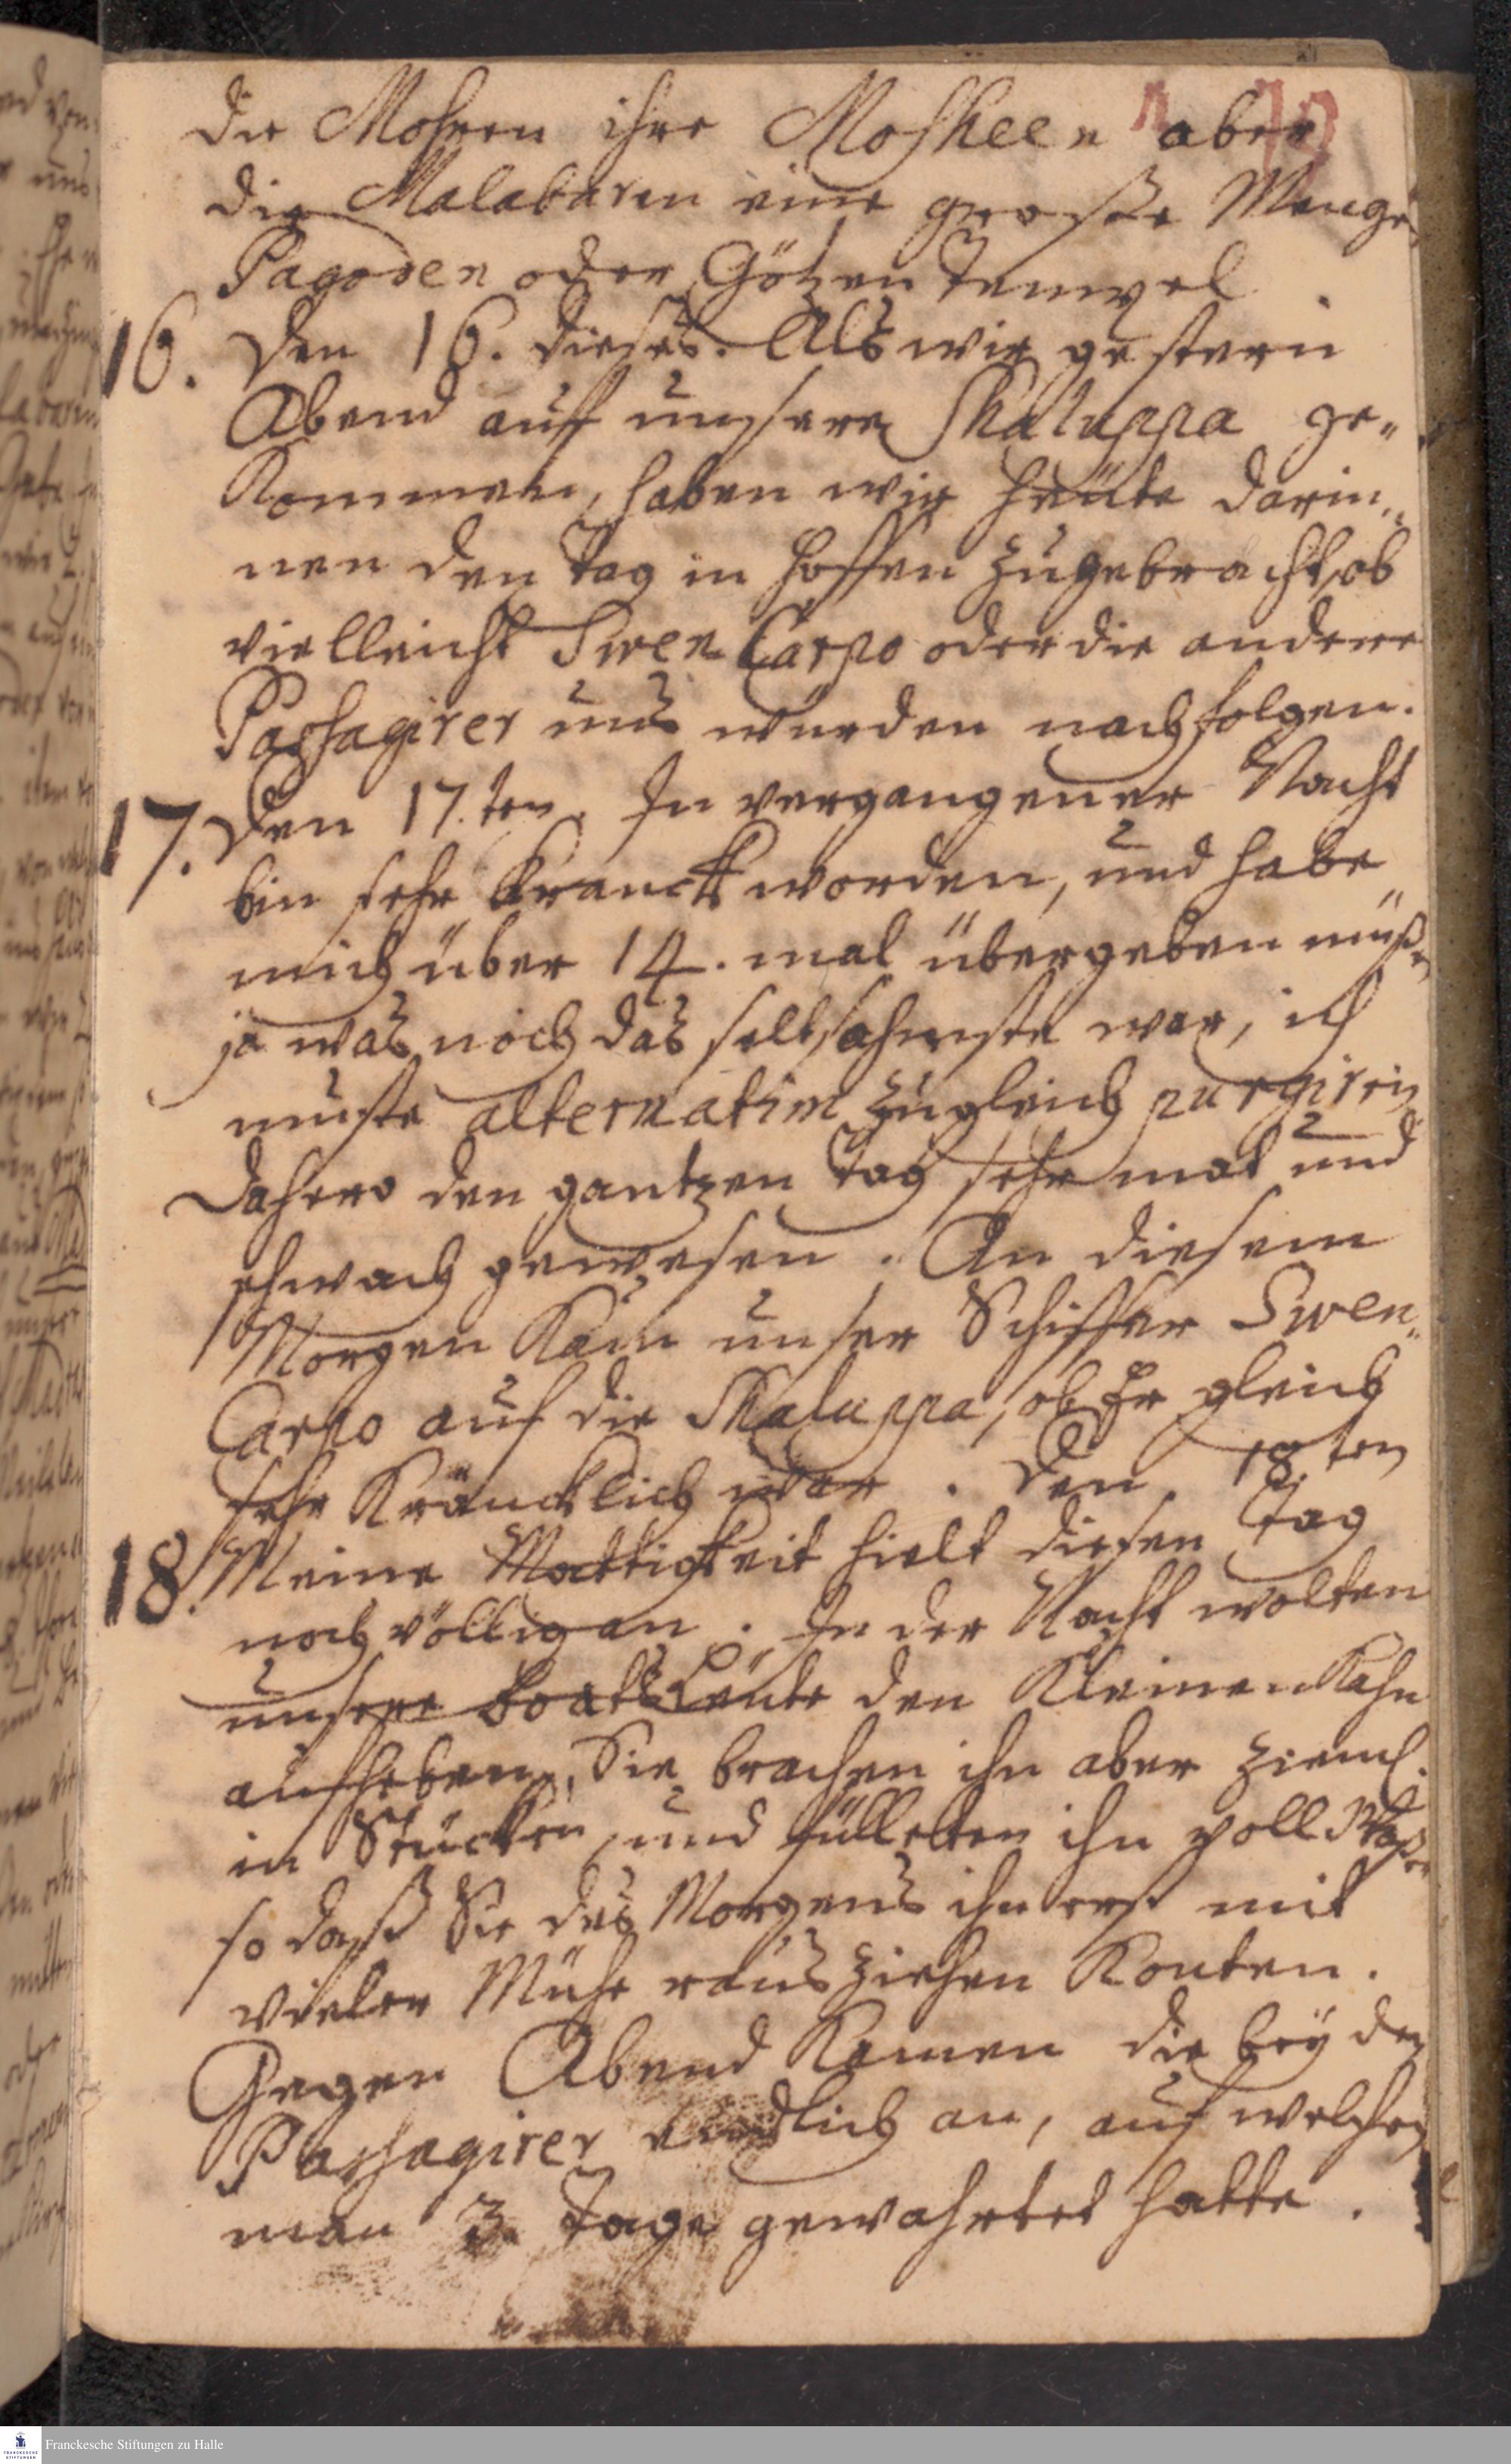 die Mohren ihre Moskeen aber
die Malabaren eine große Menge
Pagoden oder Götzen Tempel
16. Den 16. dieses. Als wir gestern
Abend auf unsere Skaluppa ge„
kommen, haben wir heute darin„
nen den Tag in hoffen zugebracht, ob
vielleicht Swen Carpo oder die andere
Passagirer uns würden nachfolgen.
17. Den 17.ten. In vergangener Nacht
bin sehr kranck worden, und habe
mich über 14. mal übergeben müßen
ja was noch das seltsahmste war, ich
muste alternatim zugleich purgiren
Dahero den gantzen Tag sehr mat und
schwach gewesen. An diesem
Morgen kam unser Schiffer Swen„
Carpo auf die Skaluppa, ob Er gleich
sehr kräncklich war. Den 18.ten
18. Meine Mattigkeit hielt diesen Tag
noch völlig an. In der Nacht wolten
unsere Boatsleute den kleinen Kahn
aufheben, Sie brachen ihn aber zieml.
in Stücken, und fülleten ihn voll Waßer
so daß Sie des Morgens ihn erst mit
vieler Mühe rausziehen konten.
Gegen Abend kamen die beyden
Passagirer endlich an, auf welche
man 3. Tage gewahrtet hatte.
Franckesche Stiftungen zu Halle